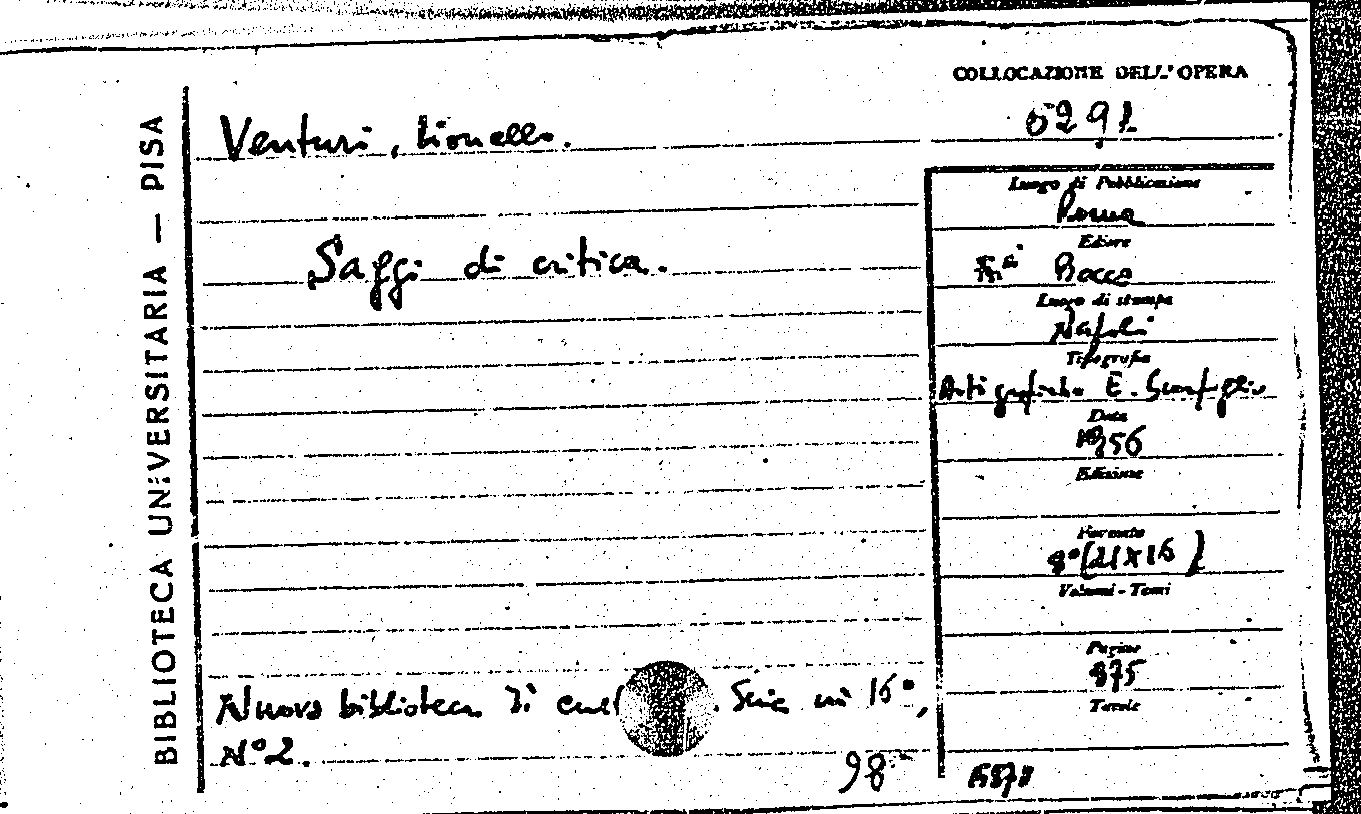 BIBLIOTECA UNIVERSITARIA — PISA
COLLOCAZIONE DELL'OPERA
Venturi, Lionello.
Saggi di critica.
Luogo di Pubblicazione
Roma
Editore
F.lli Bocca
Luogo di stampa
Napoli
Tipografia
Arti grafiche E.
Data
1956
Edizione
Formato
8°(21X15)
Volumi - Tomi
Pagine
375
Tavole
Nuova biblioteca di Serie in 16°,
N°2.
98